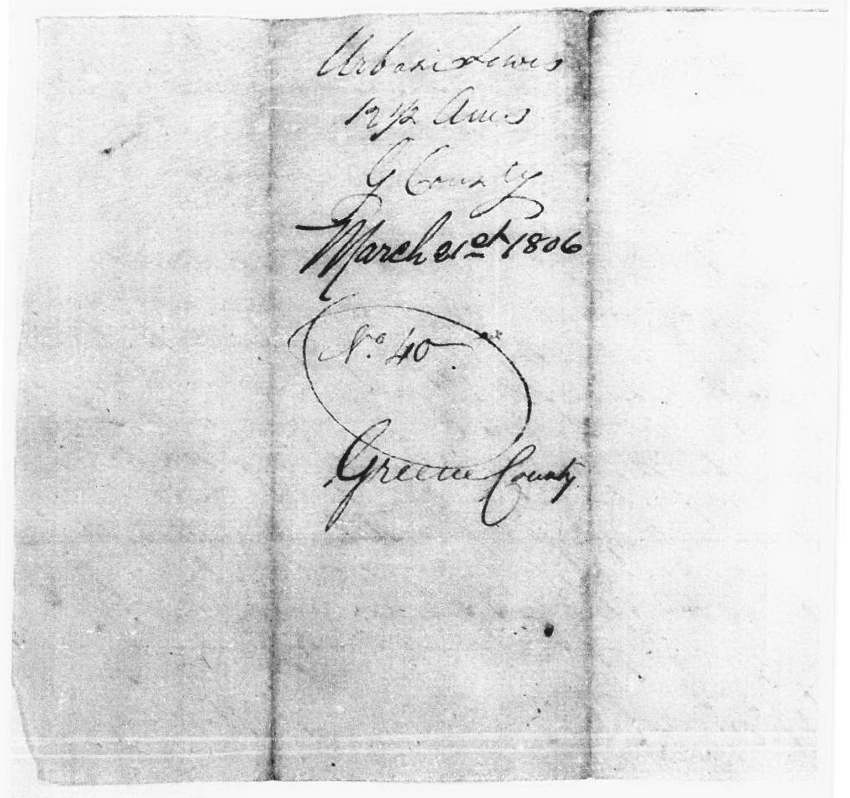 Urban Lewis
12 1/2 Acres
G County
March 21st 1806
No. 40
Greene County